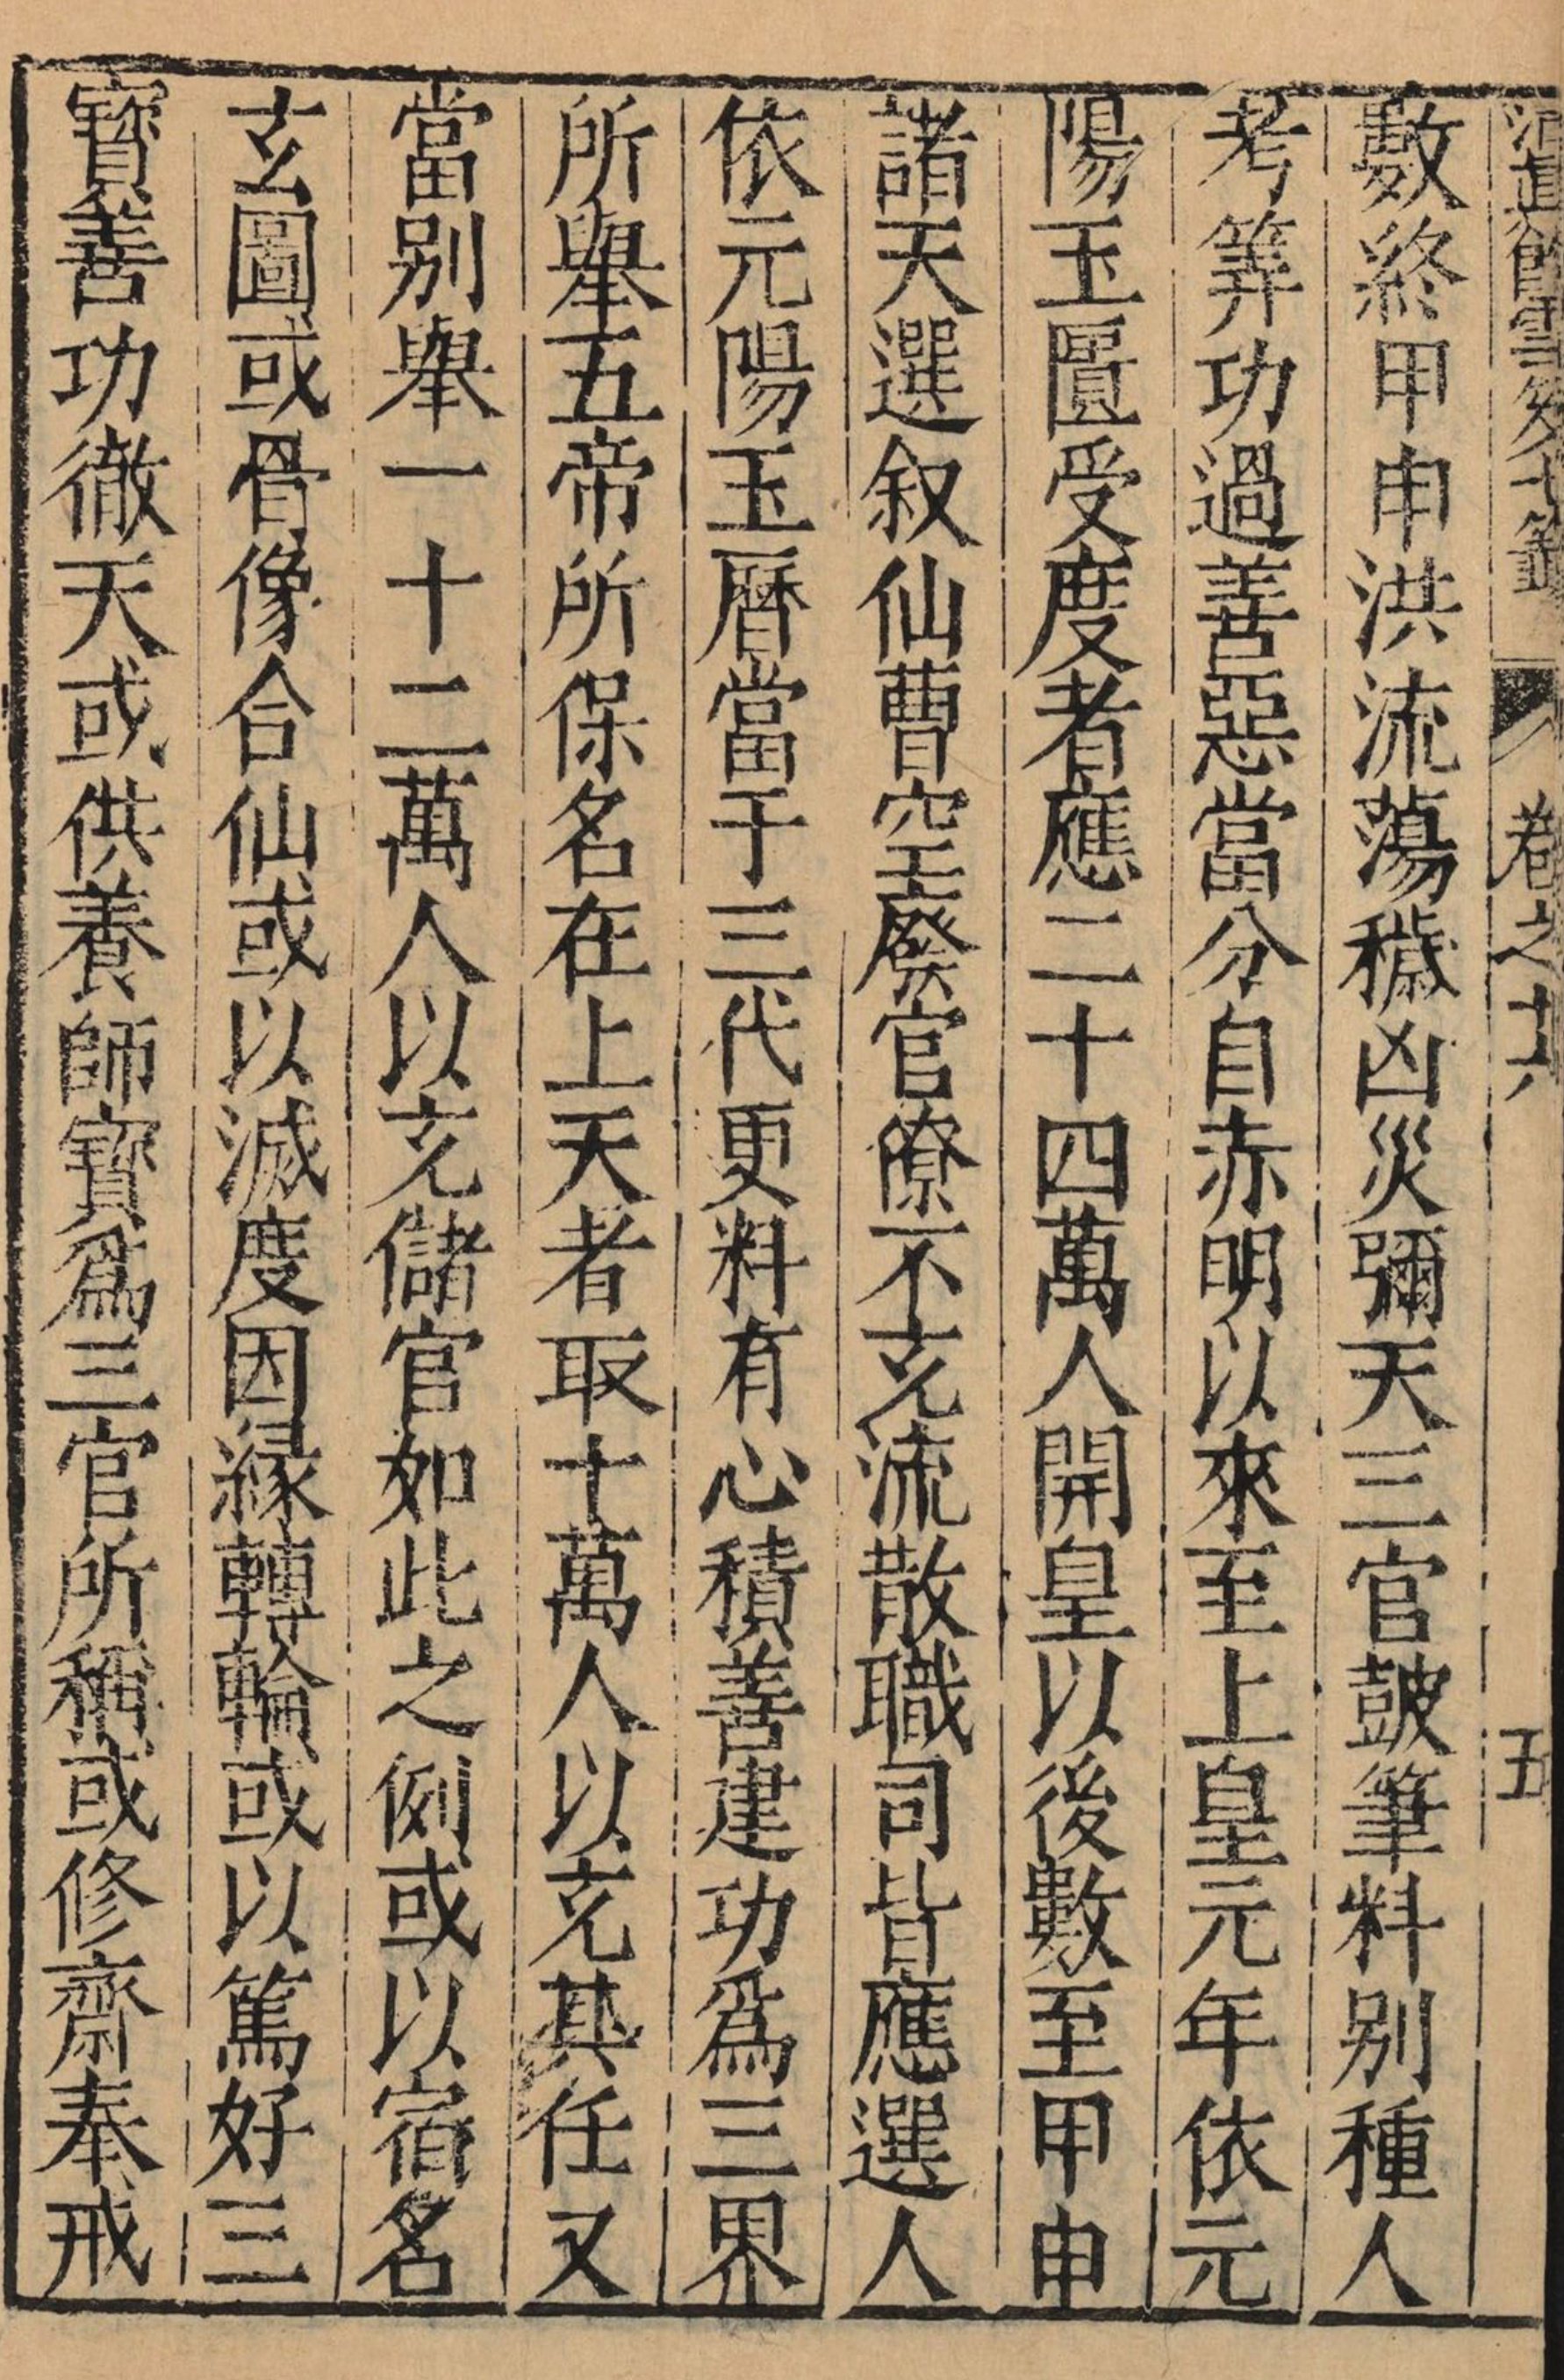 卷之十六　五
數終甲申洪流蕩穢凶災彌天三官皷筆料别種人
考筭功過善惡當分自赤明以來至上皇元年依元
陽玉匱受度者應二十四萬人開皇以後數至甲申
諸天選叙仙曹空廢官僚不充流散職司皆應選人
依元陽玉曆當于三代更料有心積善建功爲三界
所舉五帝所保名在上天者取十萬人以充其任又
當别舉一十二萬人以充儲官如此之例或以宿名
玄圖或骨像合仙或以滅度因緣轉輪或以篤好三
寳善功徹天或供養師寳爲三官所稱或修齋奉戒